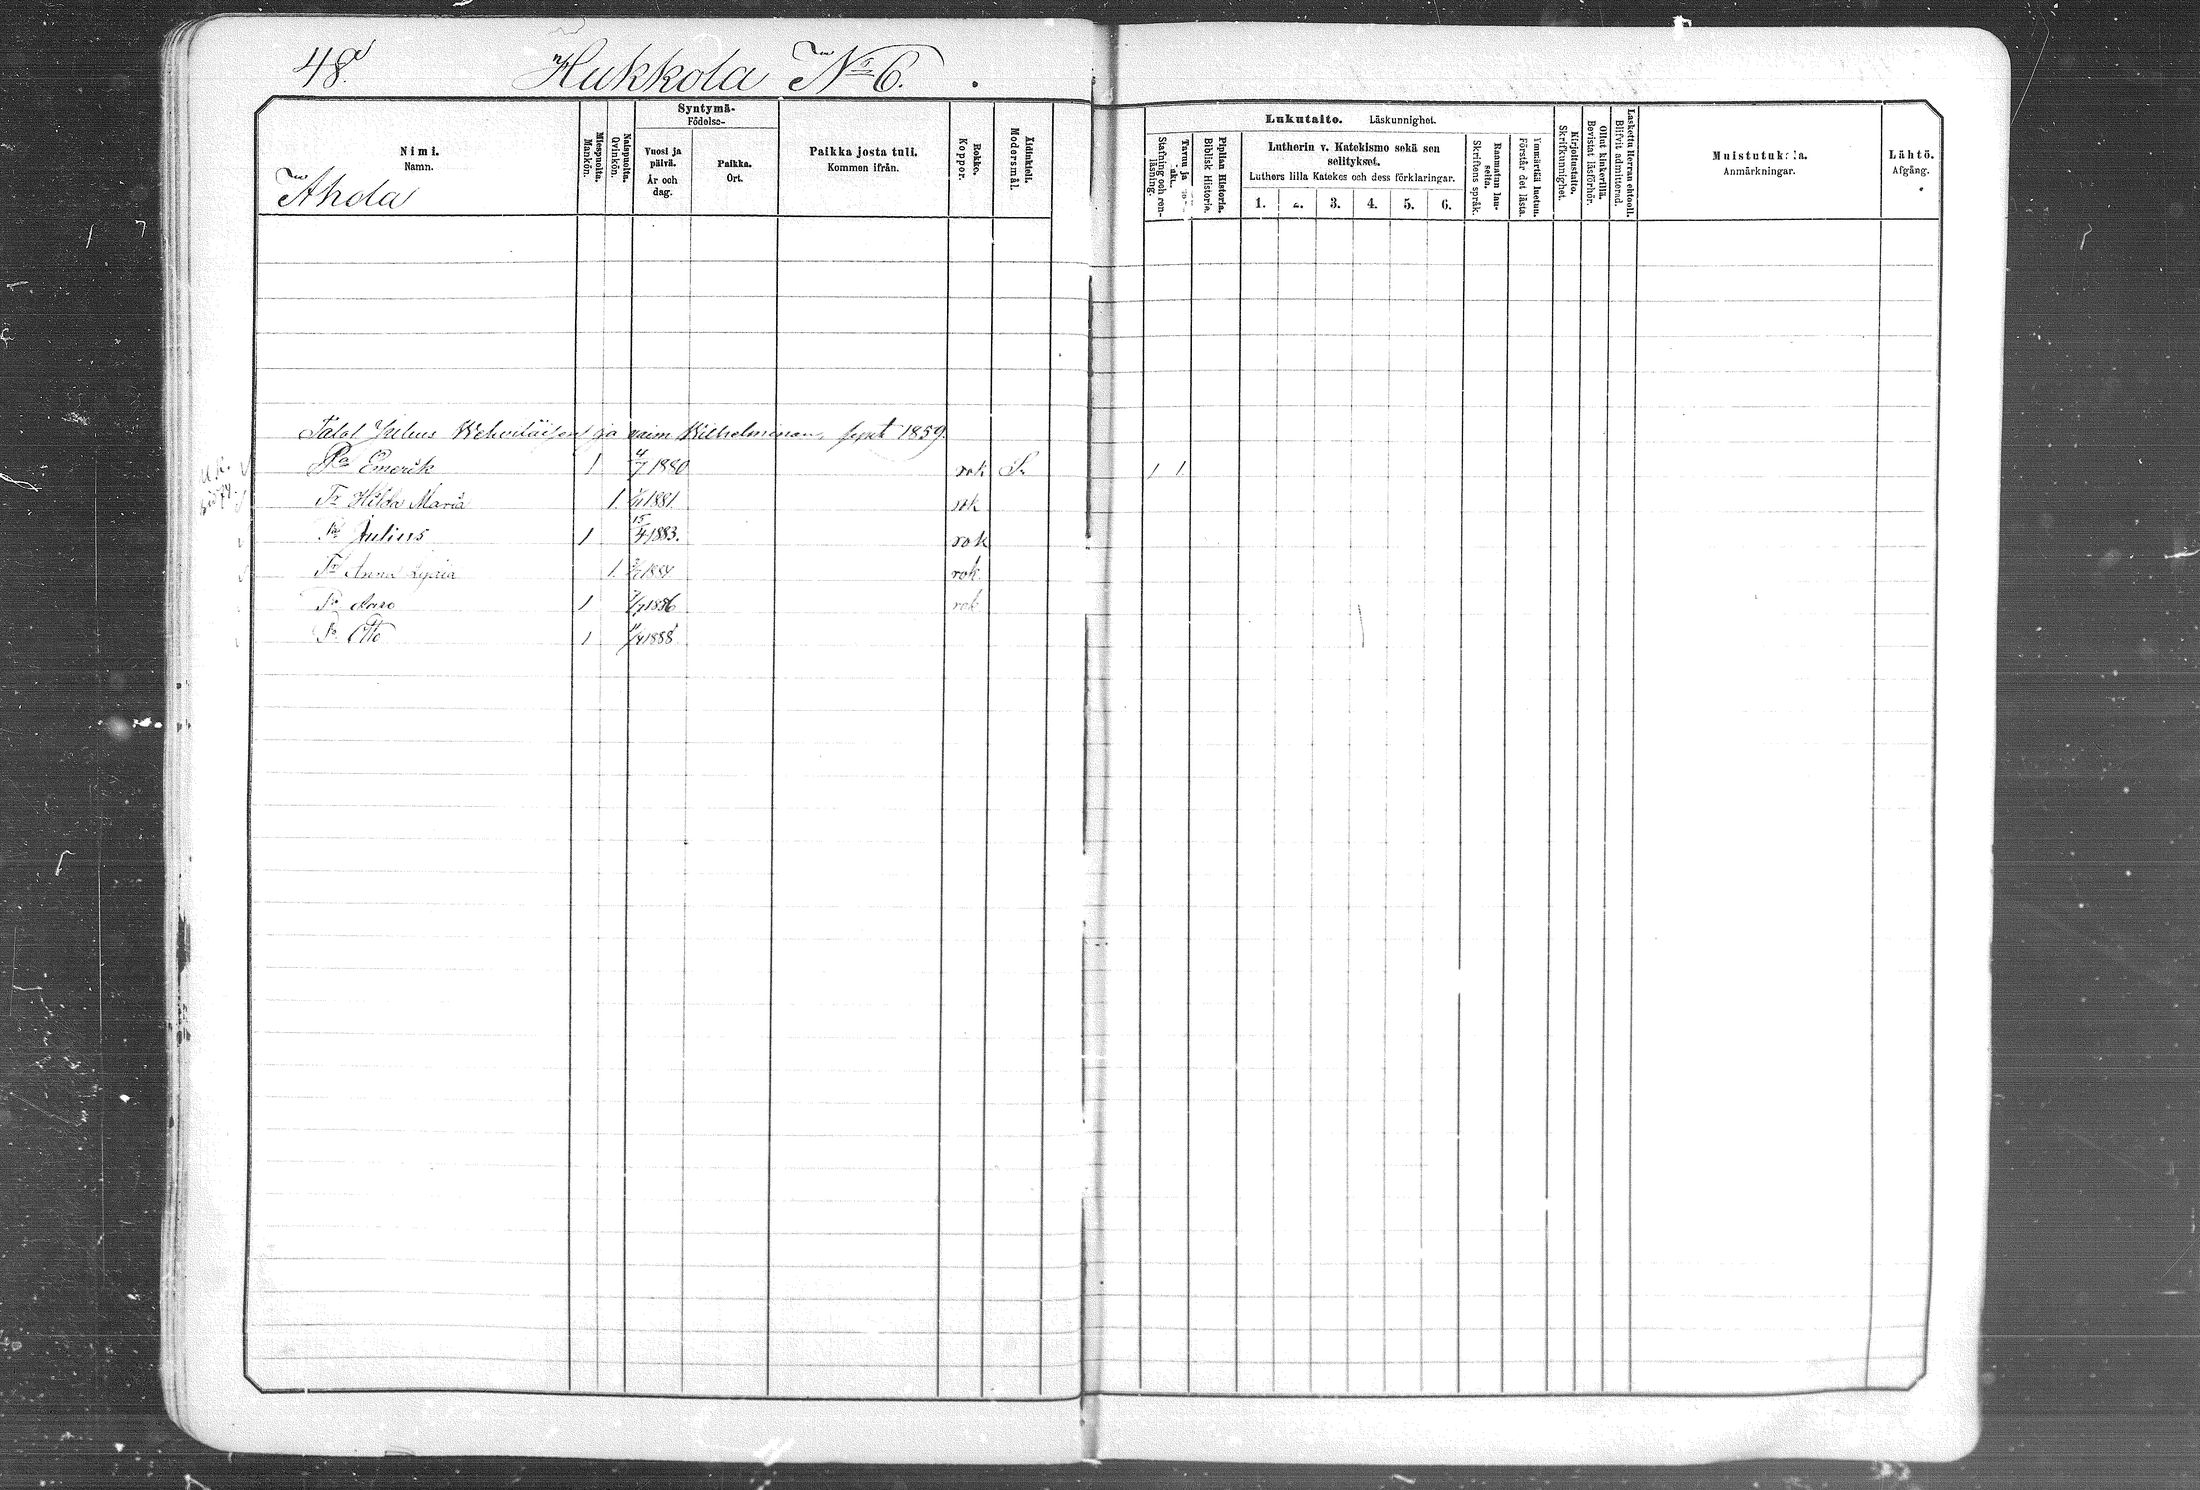 48
Hukkola No 6.
Nimi.
Namn.
Ahola
Miespuolta.
Mankön.
Naispuolta.
Qvinkön.
Syntymä-
Födelse-
Vuosi ja päivä.
År och dag.
Paikka.
Ort.
Paikka josta tuli.
Kommen ifrån.
Rokko.
Koppor.
Äidinkieli.
Modersmål.
Lukutaito. Läskunnighet.
Tavuu ja
Stafning och ren-läsning.
Piplian Historia.
Biblisk Historia.
Lutherin v. Katekismo sekä sen
selitykset.
Luthers lilla Katekes och dess förklaringar.
1. 2. 3. 4. 5. 6.
Raamatun lau-seita.
Skriftens språk.
Ymmärtää luetun.
Förstår det lästa.
Kirjoitustaito.
Skrifkunnighet.
Ollut kinkerillä.
Bevistat läsförhör.
Laskettu Herran ehtooll.
Blifvit admitterad.
Muistutuksia.
Anmärkningar.
Lähtö.
Afgång.
Julius ja vaim Wilhelminan, synt 1859.
Po Emerik 1 4/7 1880 rok S. 1 1
Tr Hilda Maria 1. 1881. rok
Po Julius 1 15/4 1883. rok
Tr Anna Lydia 1. 1884 rok
Po 1 1886 rok
Po Otto 1 1888